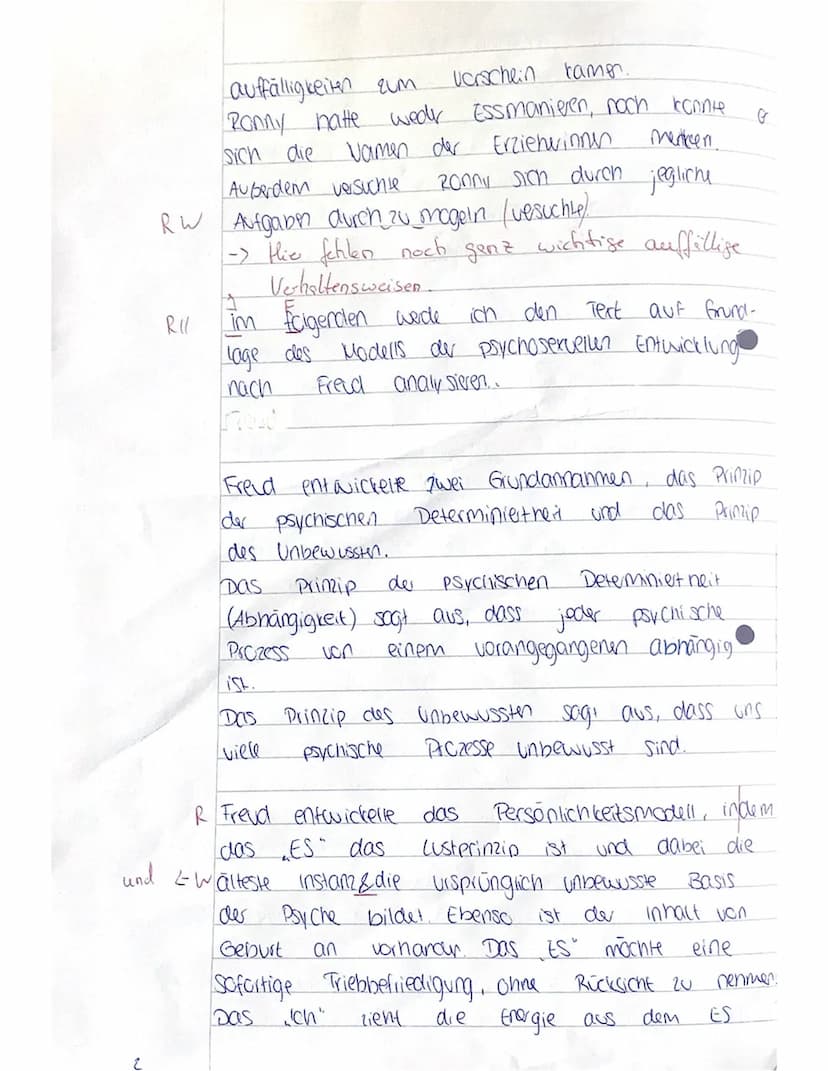 auffälligkeiten zum vorschein kamen.
Ronny hatte weder Essmanieren, noch konnte er
sich die Namen der Erzieherinnen merken.
Außerdem versuchte Ronny sich durch jegliche
RW Aufgaben durch_zu_mogeln (vesuchte).
-> Hier fehlen noch ganz wichtige auffällige
Verhaltensweisen.
R11 im Folgenden werde ich den Text auf Grund-
lage des Modells der psychosexuellen Entwicklung
nach Freud analysieren.
Freud
Freud entwickelte zwei Grundannahmen, das Prinzip
der psychischen Determiniertheit und das Prinzip
des Unbewussten.
Das Prinzip der psychischen Determiniertheit
(Abhängigkeit) sagt aus, dass jeder psychische
Prozess von einem vorangegangenen abhängig
ist.
Das Prinzip des Unbewussten sagt aus, dass uns
viele psychische Prozesse unbewusst sind.
R Freud entwickelte das Persönlichkeitsmodell, indem
das „ES“ das Lustprinzip ist und dabei die
und W älteste Instanz & die ursprünglich unbewusste Basis
der Psyche bildet. Ebenso ist der Inhalt von
Geburt an vorhanden. Das „ES“ möchte eine
sofortige Triebbefriedigung, ohne Rücksicht zu nehmen.
Das „Ich“ zieht die Energie aus dem ES
2